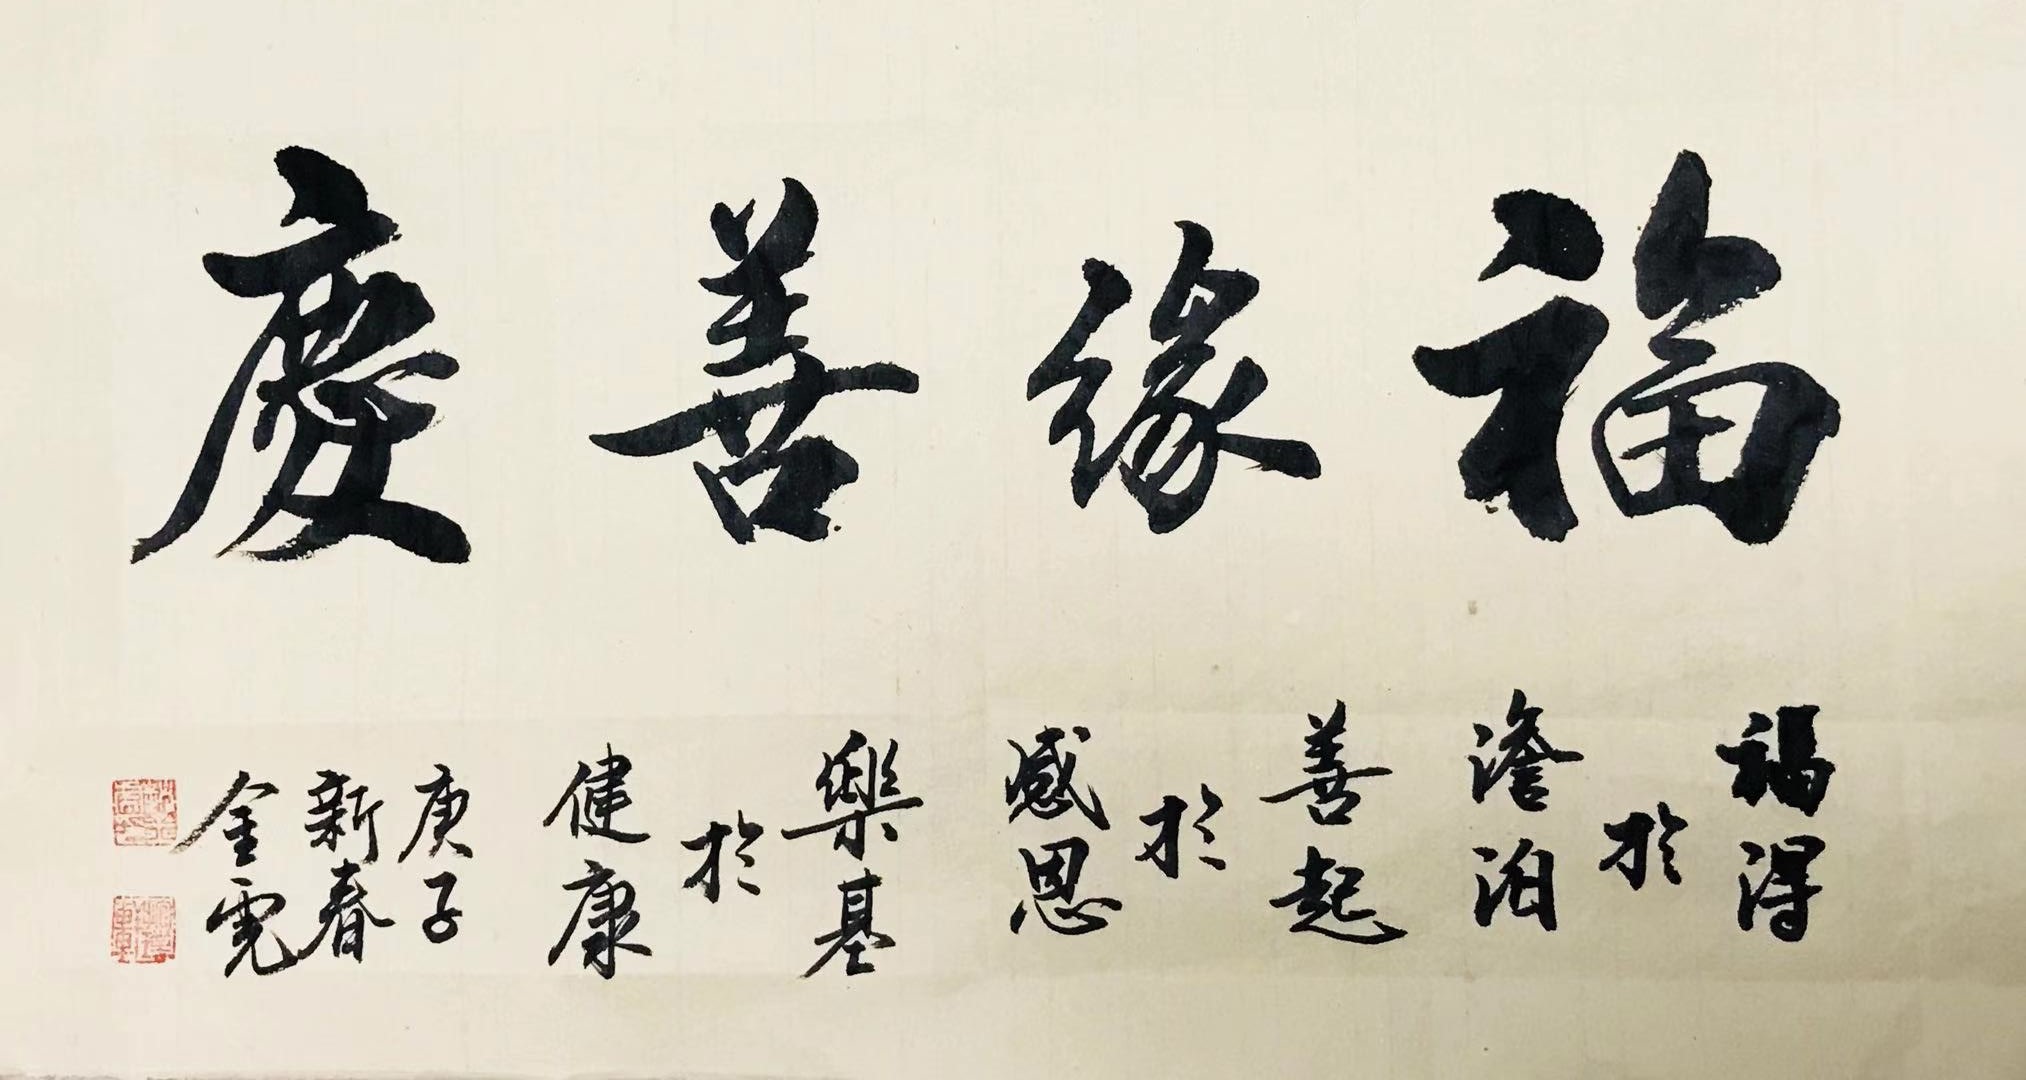 福緣善慶
福得
於
澹泊
善起
於
感恩
樂基
於
健康
庚子
新春
金霓